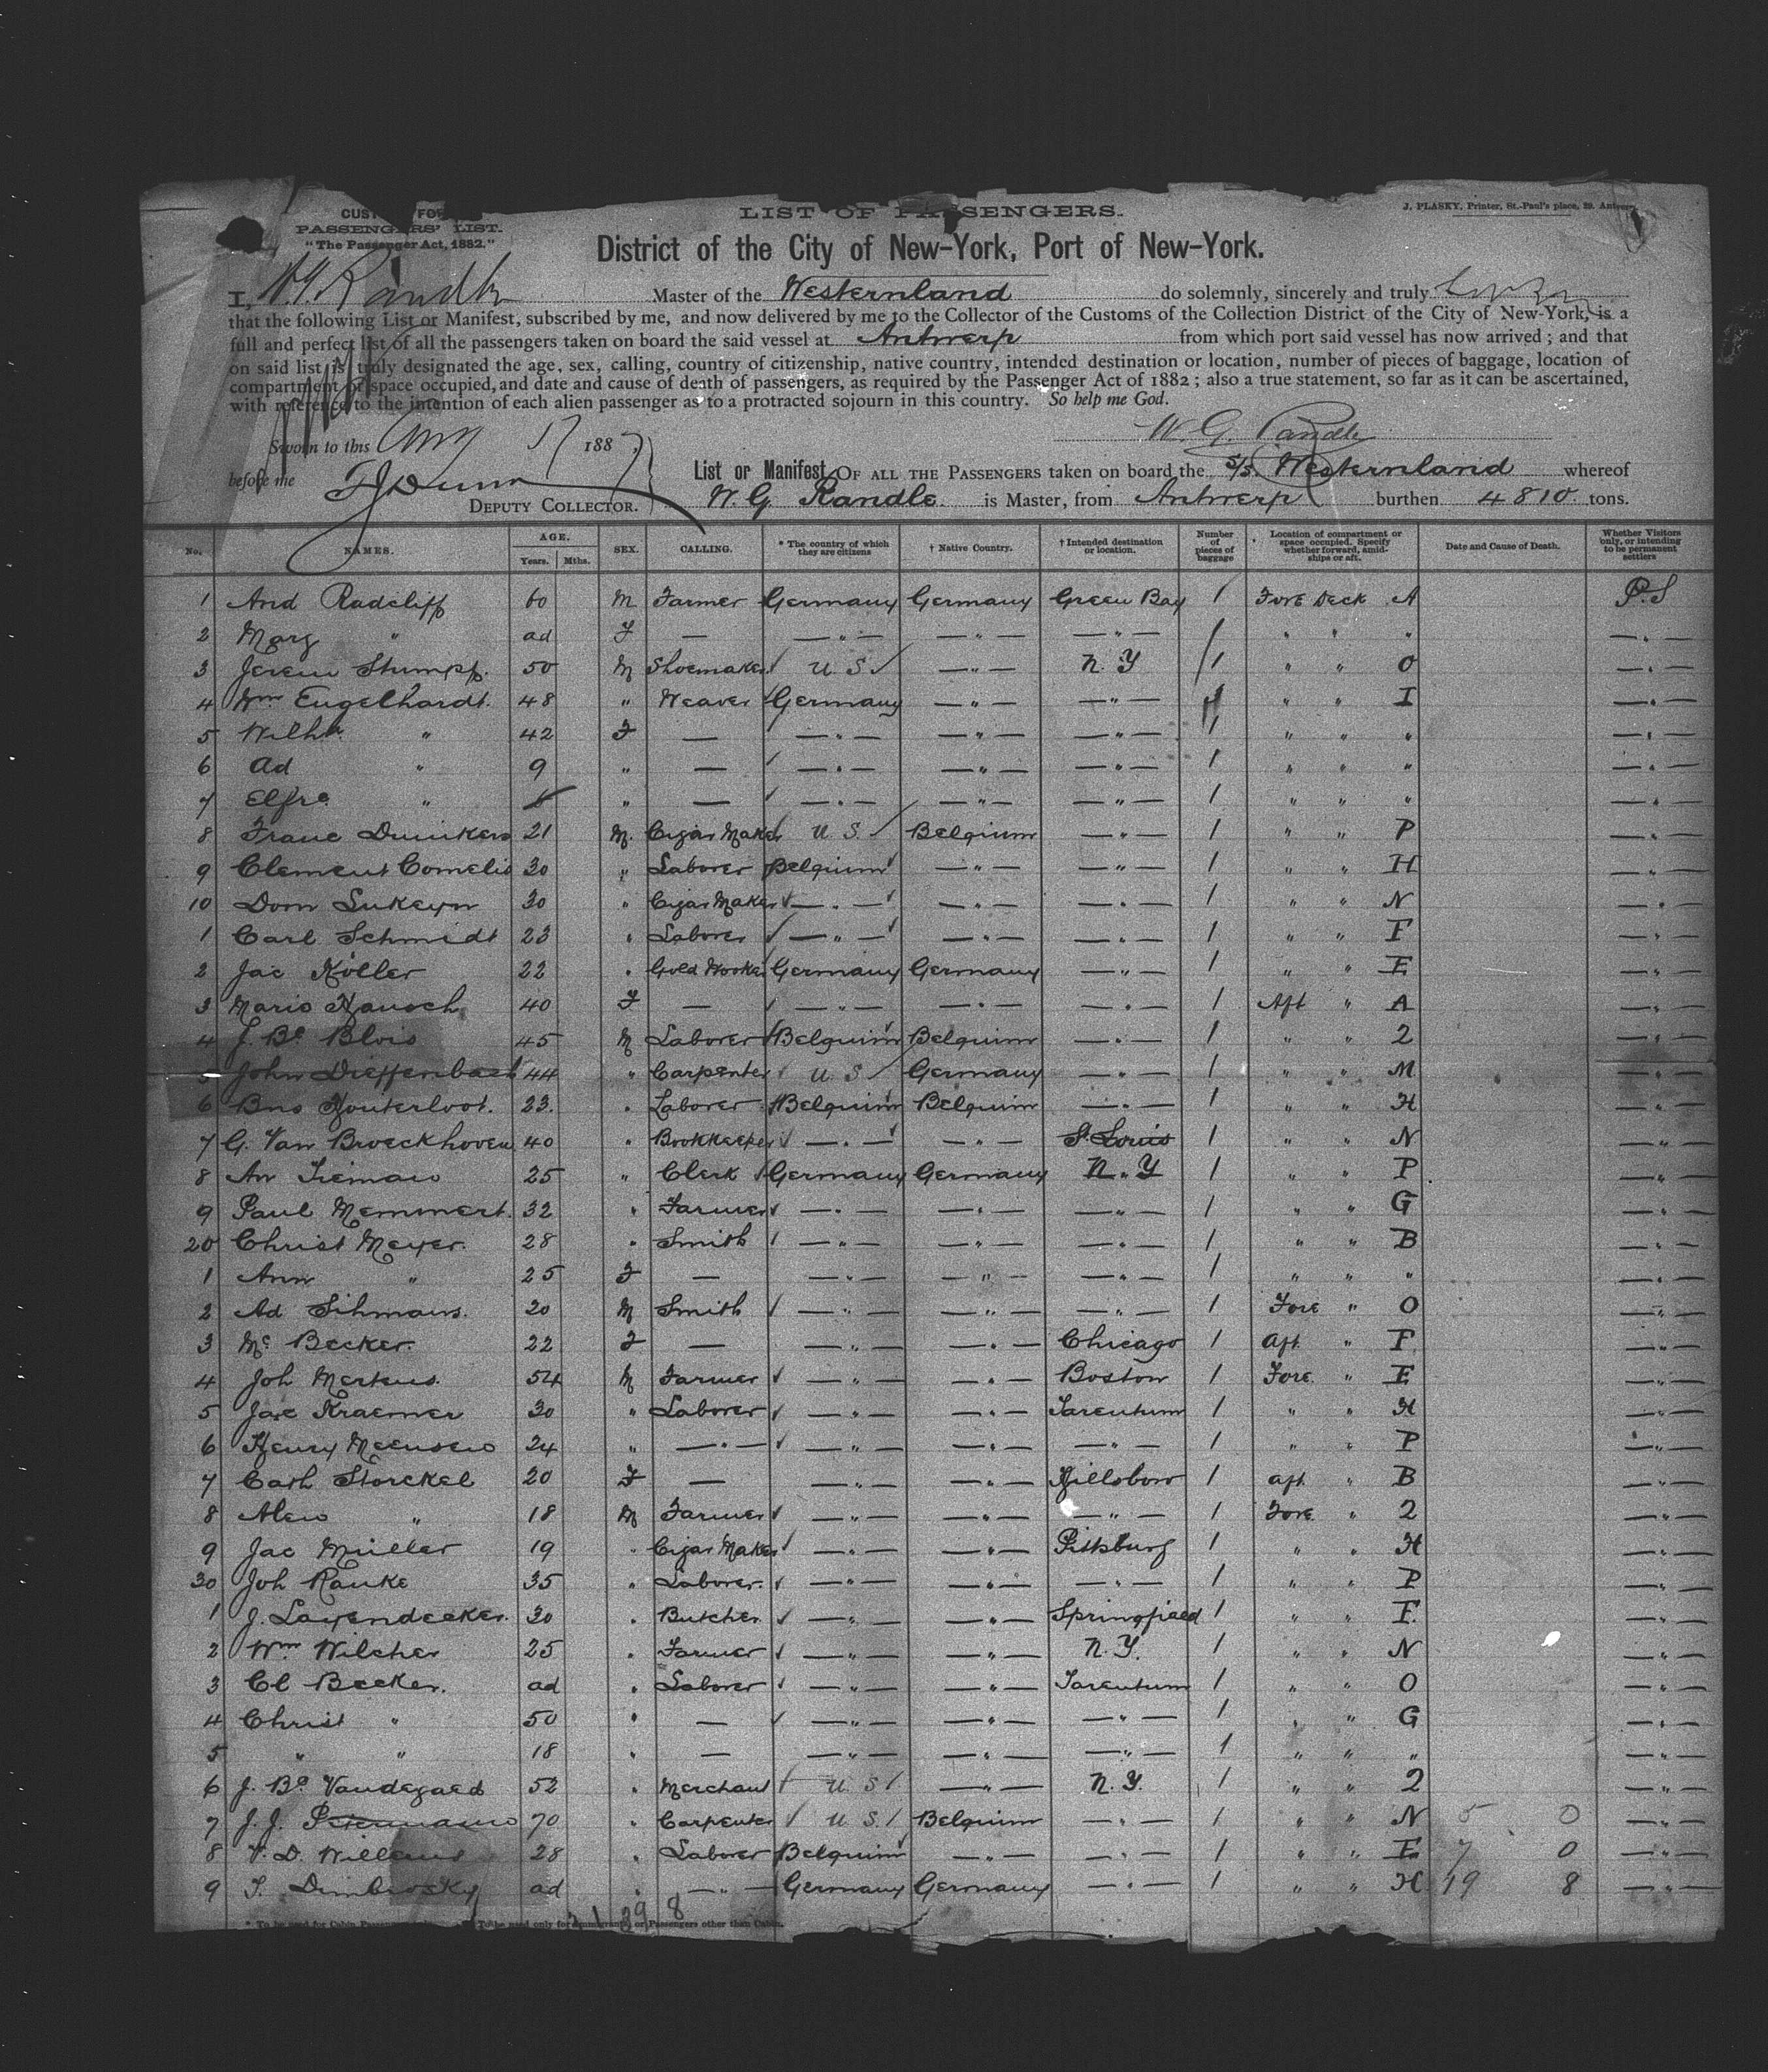 CUSTOM FORM
PASSENGERS' LIST.
"The Passenger Act, 1882."
LIST OF PASSENGERS.
J. PLASKY, Printer, St.-Paul's place, 29. Antwerp
District of the City of New-York, Port of New-York.
I, W. G. Randle Master of the Westernland do solemnly, sincerely and truly
that the following List or Manifest, subscribed by me, and now delivered by me to the Collector of the Customs of the Collection District of the City of New-York, is a
full and perfect list of all the passengers taken on board the said vessel at Antwerp from which port said vessel has now arrived; and that
on said list is truly designated the age, sex, calling, country of citizenship, native country, intended destination or location, number of pieces of baggage, location of
compartment or space occupied, and date and cause of death of passengers, as required by the Passenger Act of 1882; also a true statement, so far as it can be ascertained,
with reference to the intention of each alien passenger as to a protracted sojourn in this country. So help me God.
W. G. Randle
Sworn to this Aug 17 1887
before me
DEPUTY COLLECTOR.
List or Manifest OF ALL THE PASSENGERS taken on board the S/S. Westernland whereof
W. G. Randle is Master, from Antwerp burthen 4810 tons.
No. NAMES. AGE. Years. Mths. SEX. CALLING. * The country of which they are citizens † Native Country. † Intended destination or location. Number of pieces of baggage Location of compartment or space occupied. Specify whether forward, amidships or aft. Date and Cause of Death. Whether Visitors only, or intending to be permanent settlers
1 And Radcliff 60 M Farmer Germany Germany Green Bay 1 Fore Deck A P.S
2 Marg " ad F — —"— —"— —"— 1 " " " —"—
3 Jerem Stumpf. 50 M Shoemaker U S —"— N. Y 1 " " O —"—
4 Wm Engelhardt. 48 " Weaver Germany —"— —"— 1 " " I —"—
5 Wilha " 42 F — —"— —"— —"— 1 " " " —"—
6 Ad " 9 " — —"— —"— —"— 1 " " " —"—
7 Elfre " 6 " — —"— —"— —"— 1 " " " —"—
8 Franc Duinkers 21 M. Cigar Maker U. S. Belgium —"— 1 " " P —"—
9 Clement Cornelis 30 " Laborer Belgium —"— —"— 1 " " H —"—
10 Dom Lukeyn 30 " Cigar Maker —"— —"— —"— 1 " " N —"—
1 Carl Schmidt 23 " Laborer —"— —"— —"— 1 " " F —"—
2 Jac Köller 22 " Gold Worker Germany Germany —"— 1 " " E —"—
3 Marie Hanoch 40 F — —"— —"— —"— 1 Aft " A —"—
4 J. Be Blois 45 M Laborer Belguim Belguim —"— 1 " " 2 —"—
5 John Dieffenbach 44 " Carpenter U S Germany —"— 1 " " M —"—
6 Bno Houterloot. 23. " Laborer Belguim Belguim —"— 1 " " H —"—
7 G. Van Broeckhoven 40 " Bookkeeper —"— —"— St. Louis 1 " " N —"—
8 An Tiemann 25 " Clerk Germany Germany N. Y 1 " " P —"—
9 Paul Memmert. 32 " Farmer —"— —"— —"— 1 " " G —"—
20 Christ Meyer. 28 " Smith —"— —"— —"— 1 " " B —"—
1 Ann " 25 F — —"— —"— —"— 1 " " " —"—
2 Ad Sihmans. 20 M Smith —"— —"— —"— 1 Fore " O —"—
3 Mc Becker. 22 F — —"— —"— Chicago 1 Aft " F —"—
4 Joh Merkus. 54 M Farmer —"— —"— Boston 1 Fore " E —"—
5 Jac Kraemer 30 " Laborer —"— —"— Tarentum 1 " " H —"—
6 Henry Meensen 24 " —"— —"— —"— —"— 1 " " P —"—
7 Cath Storckel 20 F — —"— —"— Hillsboro 1 aft " B —"—
8 Alew " 18 M Farmer —"— —"— —"— 1 Fore " 2 —"—
9 Jac Müller 19 " Cigar Maker —"— —"— Pittsburg 1 " " H —"—
30 Joh Ranke 35 " Laborer. —"— —"— —"— 1 " " P —"—
1 J. Layendecker. 30 " Butcher —"— —"— Springfield 1 " " E. —"—
2 Wm Wilcher 25 " Farmer —"— —"— N. Y. 1 " " N —"—
3 Cl Becker. ad " Laborer —"— —"— Tarentum 1 " " O —"—
4 Christ " 50 " — —"— —"— —"— 1 " " G —"—
5 " " 18 " — —"— —"— —"— 1 " " " —"—
6 J. Be Vandegaed 52 " Merchant U S —"— N. Y. 1 " " 2 —"—
7 J. J. Petermans 70 " Carpenter U S. Belguim —"— 1 " " N 5 0 —"—
8 V. D. Willems 28 " Laborer Belguim —"— —"— 1 " " E 7 0 —"—
9 S. Dimbrosky ad " —"— Germany Germany —"— 1 " " H 19 8 —"—
* To be used for Cabin Passengers † To be used only for immigrants, or Passengers other than Cabin.